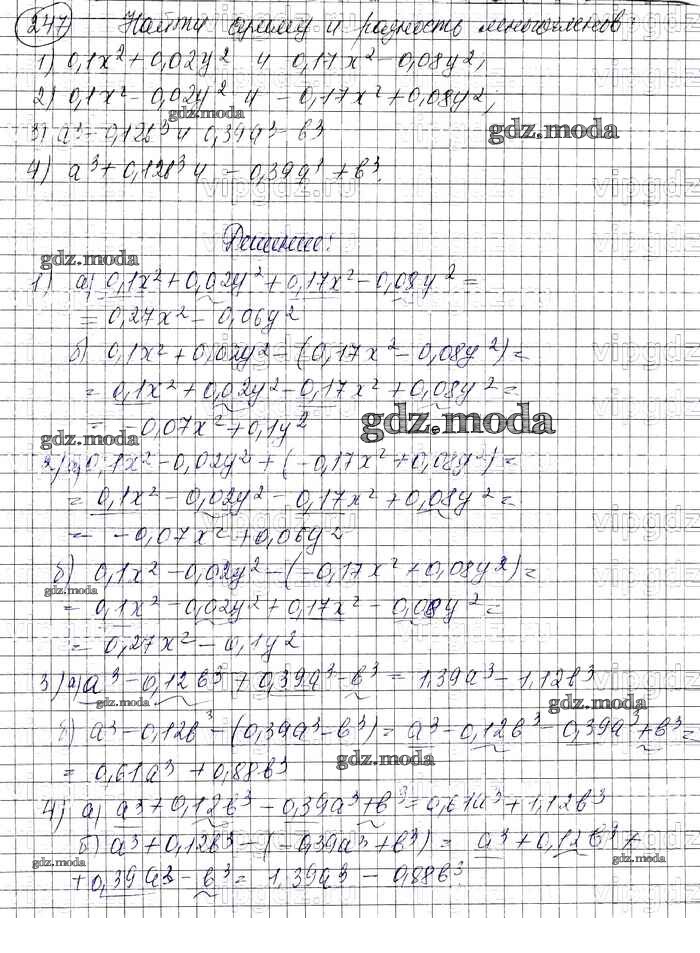 247 Найти сумму и разность многочленов:
1) 0,1x² + 0,02y² и 0,17x² - 0,08y²;
2) 0,1x² - 0,02y² и - 0,17x² + 0,08y²;
gdz.moda
3) a³ - 0,12b³ и 0,39a³ - b³
gdz.moda
4) a³ + 0,12b³ и - 0,39a³ + b³.
Решение:
gdz.moda
1) а) 0,1x² + 0,02y² + 0,17x² - 0,08y² =
= 0,27x² - 0,06y²
б) 0,1x² + 0,02y² - (0,17x² - 0,08y²) =
= 0,1x² + 0,02y² - 0,17x² + 0,08y² =
= -0,07x² + 0,1y²
gdz.moda
gdz.moda
2) а) 0,1x² - 0,02y² + (-0,17x² + 0,08y²) =
= 0,1x² - 0,02y² - 0,17x² + 0,08y² =
= -0,07x² + 0,06y²
б) 0,1x² - 0,02y² - (-0,17x² + 0,08y²) =
gdz.moda
= 0,1x² - 0,02y² + 0,17x² - 0,08y² =
= 0,27x² - 0,1y²
3) а) a³ - 0,12b³ + 0,39a³ - b³ = 1,39a³ - 1,12b³
gdz.moda
gdz.moda
б) a³ - 0,12b³ - (0,39a³ - b³) = a³ - 0,12b³ - 0,39a³ + b³ =
= 0,61a³ + 0,88b³
gdz.moda
4) а) a³ + 0,12b³ - 0,39a³ + b³ = 0,61a³ + 1,12b³
б) a³ + 0,12b³ - (-0,39a³ + b³) = a³ + 0,12b³ +
gdz.moda
gdz.moda
+ 0,39a³ - b³ = 1,39a³ - 0,88b³.
gdz.moda